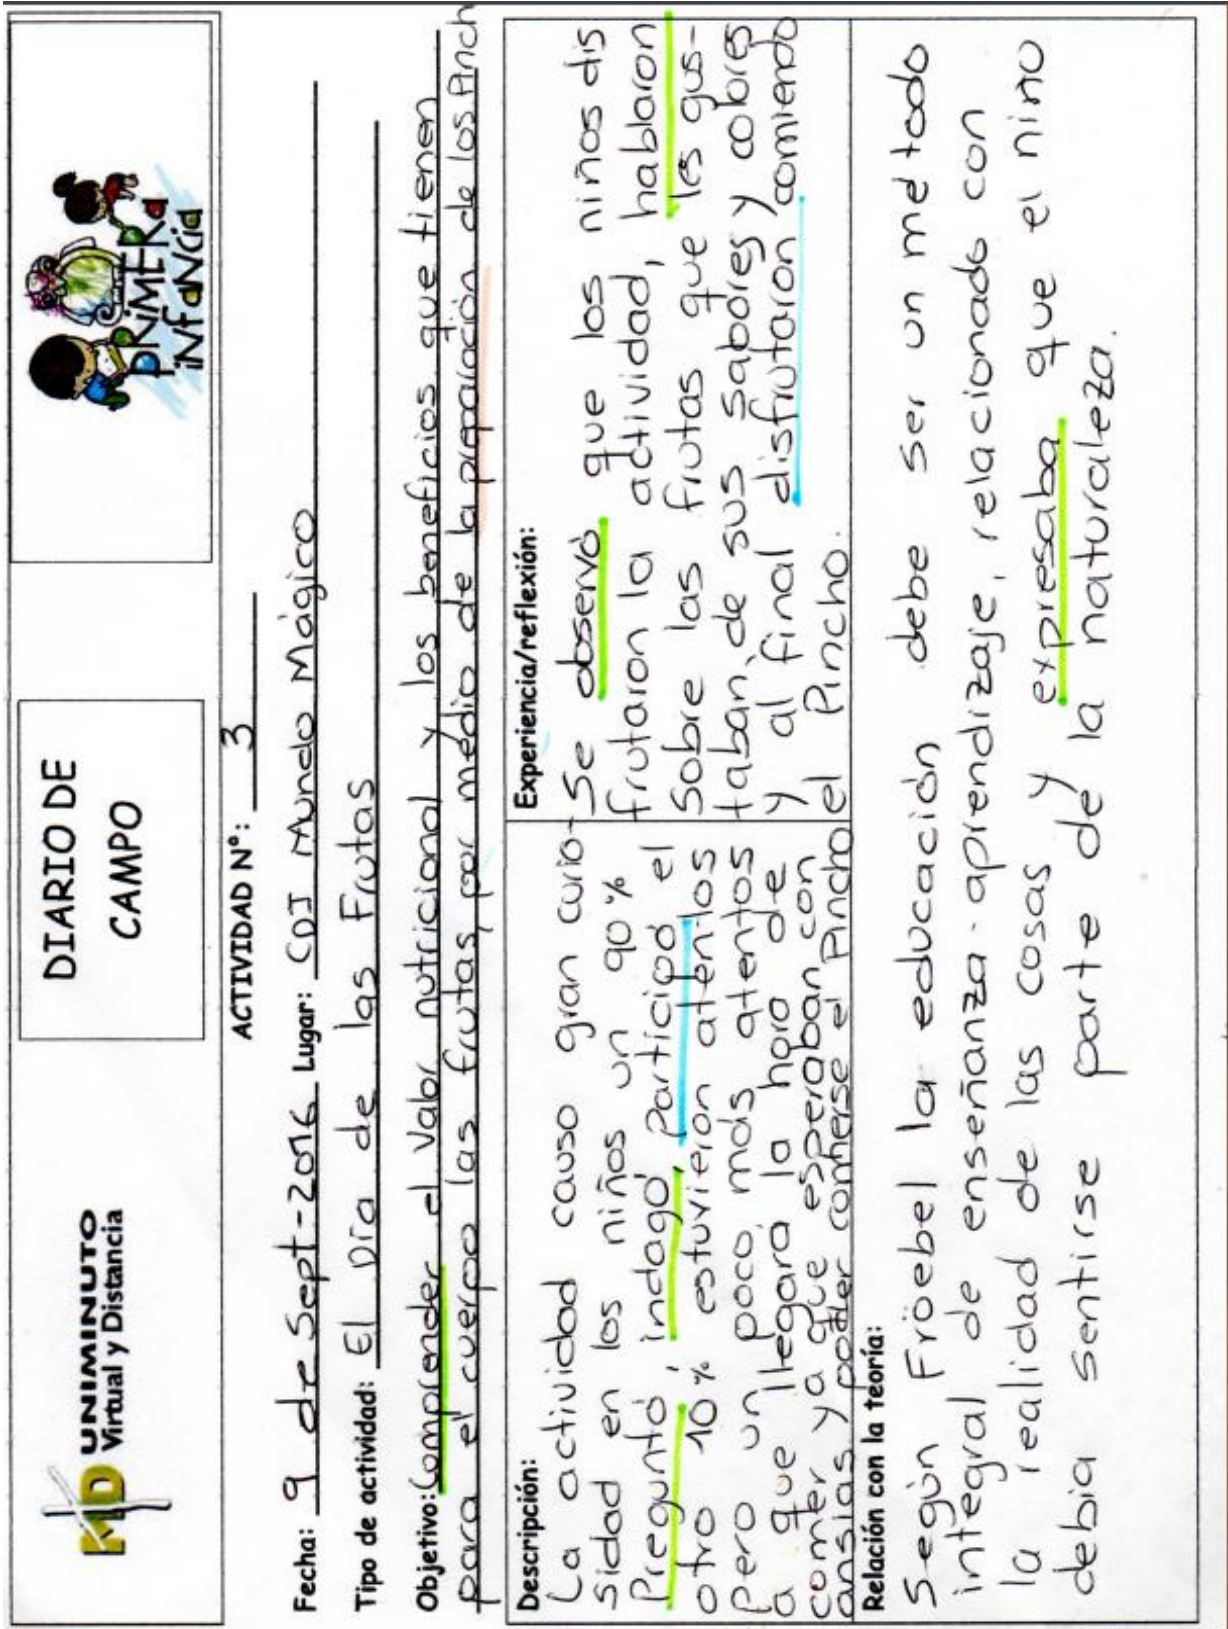 UNIMINUTO
Virtual y Distancia
DIARIO DE
CAMPO
PRIMERa
iNfaNcia
ACTIVIDAD N°: 3
Fecha: 9 de Sept-2016 Lugar: CDI Mundo Mágico
Tipo de actividad: El Día de las Frutas
Objetivo: Comprender el valor nutricional y los beneficios que tienen
para el cuerpo las frutas, por medio de la preparación de los Pinch
Descripción:
La actividad causo gran curio-
sidad en los niños un 90%
Preguntó, indagó, participó el
otro 10% estuvieron atentos
pero un poco más atentos
a que llegara la hora de
comer ya que esperaban con
ansias poder comerse el Pincho
Experiencia/reflexión:
Se observó que los niños dis
frutaron la actividad, hablaron
Sobre las frutas que les gus-
taban, de sus sabores y colores
y al final disfrutaron comiendo
el Pincho.
Relación con la teoría:
Según Fröebel la educación debe ser un metodo
integral de enseñanza-aprendizaje, relacionado con
la realidad de las cosas y expresaba que el nino
debia sentirse parte de la naturaleza.